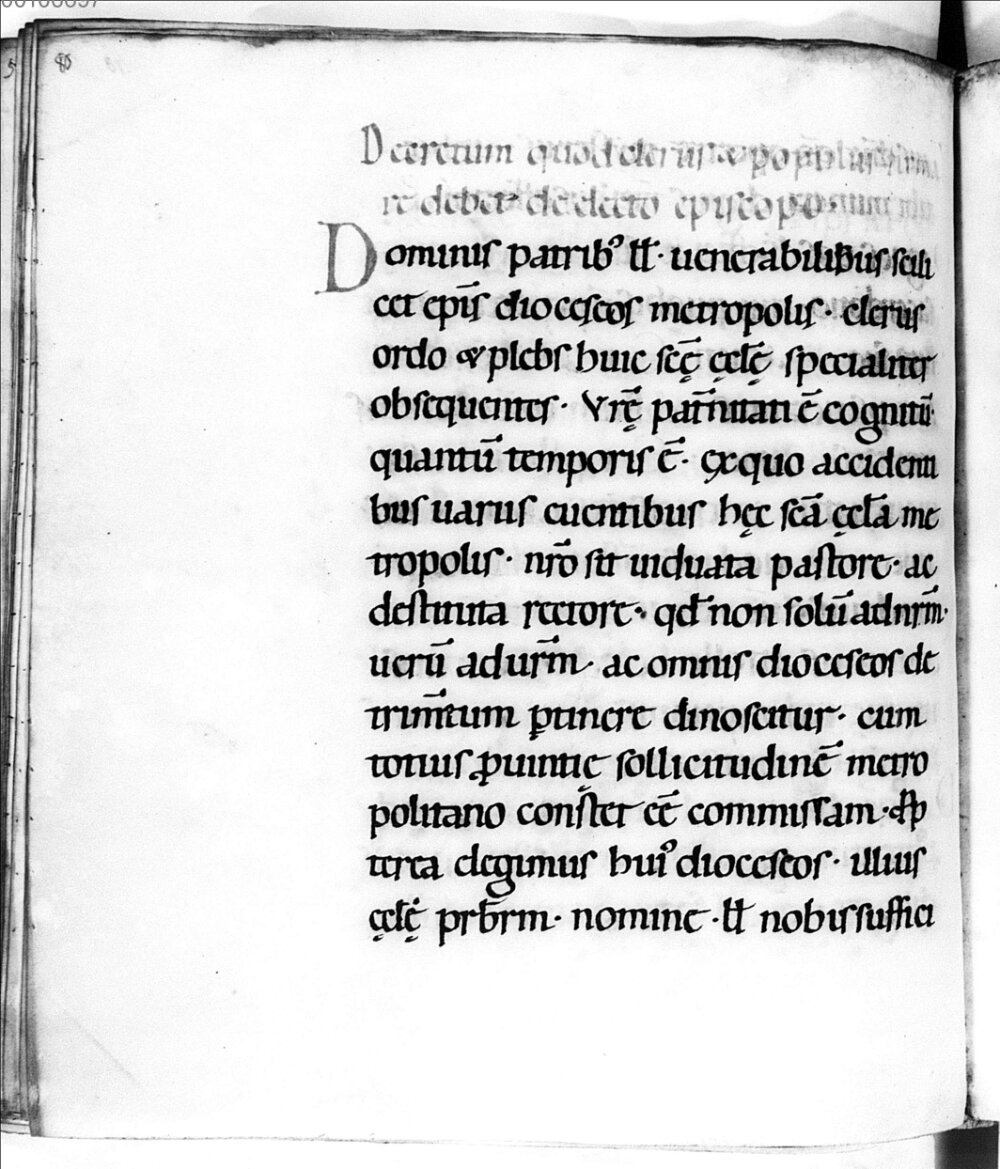 Decretum quod clerus & populus firma
re debet de electo episcopo
Dominis patribꝰ ɫɫ· uenerabilibus scili
cet ep̄is diocęseos metropolis· clerus
ordo & plebs huic scę̄ ęcl̄ę specialiter
obsequentes· Vrę̄ pat̄nitati ē cognitū·
quantū temporis ē· ęx quo accidenti
bus uariis euentibus hęc scā ęcl̄a me
tropolis· nr̄o sit uiduata pastore· ac
destituta rectore· qđ non solū ad nr̄m·
uerū ad ur̄m· ac omnis dioceseos de
trim̄tum ꝑtinere dinoscitur· cum
totius ꝓuintię sollicitudinē metro
politano constet eē commissam· Pro
terea elegimus huiꝰ dioceseos· illius
ęcl̄ę prb̄rm· nomine· ɫɫ nobis suffici